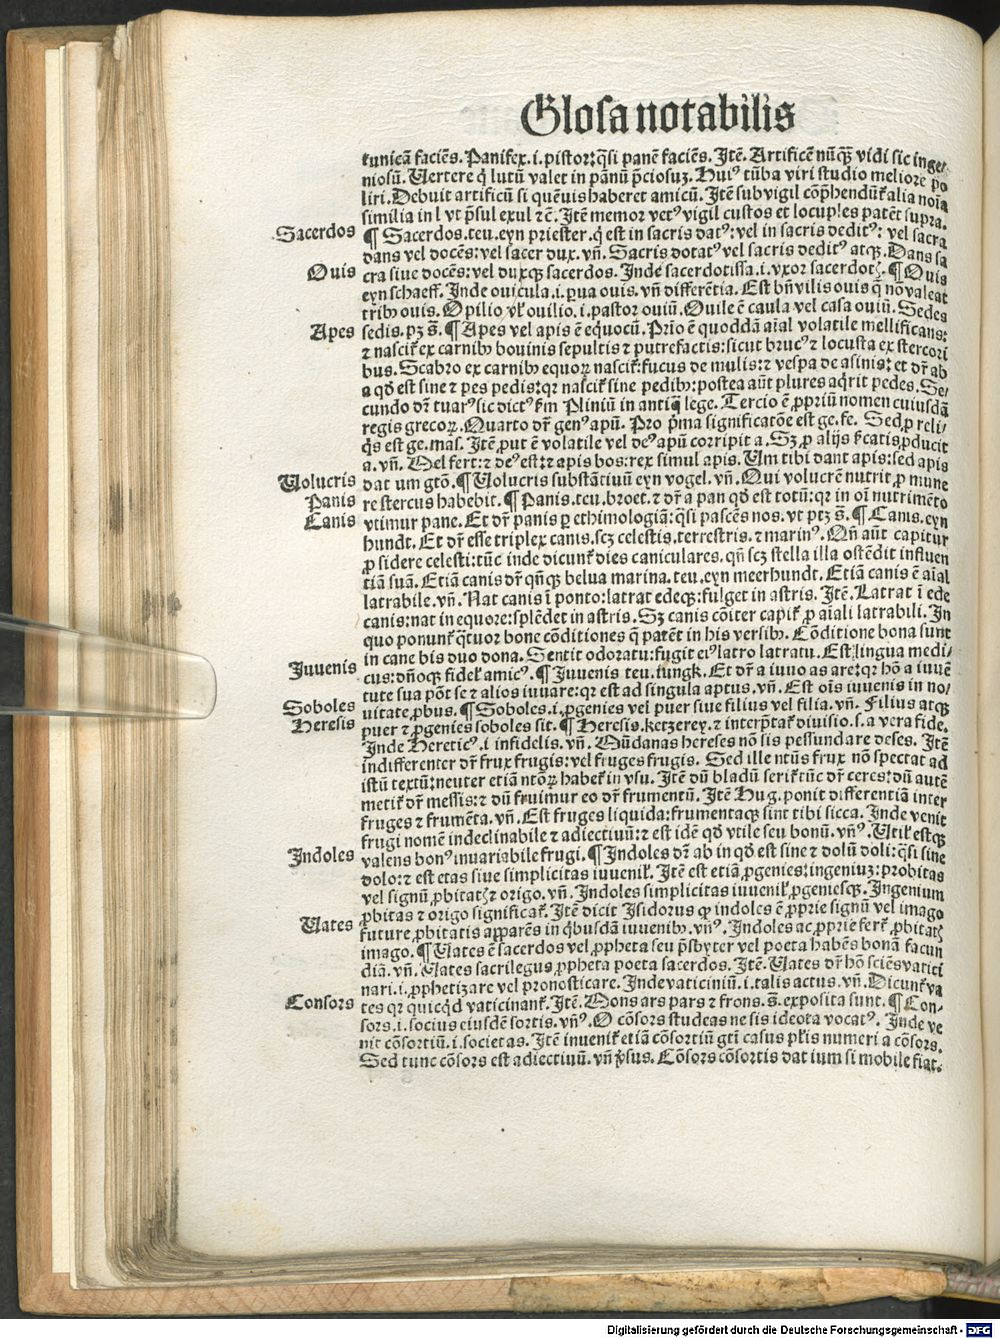 Glosa notabilis
tunicā faciēs. Panifex .i. pistor: q̄si panē faciēs. Itē. Artificē nūq̄ꝫ vidi sic inge⸗
niosū. Vertere q̇ lutū valet in pānū p̄ciosuꝫ. Huiꝰ tūba viri studio meliore po
liri. Debuit artificū si quēuis haberet amicū. Itē sub vigil cōp̄hendūt̃ alia noīa
similia in l vt p̄sul exul ⁊ c̄. Itē memor vetꝰ vigil custos et locuples patēt supra.
Sacerdos
¶ Sacerdos. teu. eyn priester. q̇ est in sacris datꝰ: vel in sacris deditꝰ: vel sacra
dans vel docēs: vel sacer dux. vñ. Sacris dotatꝰ vel sacris deditꝰ atqꝫ. Dans sa
Ouis
cra siue docēs: vel duxqꝫ sacerdos. Inde sacerdotissa .i. vxor sacerdotꝭ. ¶ Ouis
eyn schaeff. Inde ouicula .i. ꝑua ouis. vñ differētia. Est bn̄ vilis ouis q̄ nō valeat
tribꝫ ouis. Opilio vl̕ ouilio .i. pastor ouiū. Ouile ē caula vel casa ouiū. Sedes
Apes
sedis. pꝫ s̄. ¶ Apes vel apis ē eq̇uocū. Prīo ē quoddā aīal volatile mellificans:
⁊ nascit̃ ex carnibꝫ bouinis sepultis ⁊ putrefactis: sicut brucꝰ ⁊ locusta ex stercori
bus. Scabro ex carnibꝫ equoꝝ nascit̃: fucus de mulis: ⁊ vespa de asinis: et dr̄ ab
a qd̄ est sine ⁊ pes pedis: qꝛ nascit̃ sine pedibꝫ: postea aūt plures aq̇rit pedes. Se⸗
cundo dr̄ tuarꝰ sic dictꝰ ẜm Pliniū in antiq̄ lege. Tercio ē ꝓpriū nomen cuiusdā
regis grecoꝝ. Quarto dr̄ genꝰ apū. Pro p̄ma significatōe est ge. fe. Sed ꝓ reli⸗
q̇s est ge. mas. Itē ꝓut ē volatile vel deꝰ apū corripit a. Sꝫ ꝓ alijs ẜcatis ꝓducit
a. vñ. Mel fert: ⁊ deꝰ est: ⁊ apis bos: rex simul apis. Um tibi dant apis: sed apis
Volucris
dat um gtō. ¶ Volucris substātiuū eyn vogel. vñ. Qui volucrē nutrit ꝓ mune
Panis
re stercus habebit. ¶ Panis. teu. broet. ⁊ dr̄ a pan qd̄ est totū: qꝛ in oī nutrimēto
Canis
vtimur pane. Et dr̄ panis ꝑ ethimologiā: q̄si pascēs nos. vt ptꝫ s̄. ¶ Canis. eyn
hundt. Et dr̄ esse triplex canis. scꝫ celestis. terrestris. ⁊ marinꝰ. Qn̄ aūt capitur
ꝓ sidere celesti: tūc inde dicunt̃ dies caniculares. qn̄ scꝫ stella illa ostēdit influen
tiā suā. Etiā canis dr̄ qn̄qꝫ belua marina. teu. eyn meerhundt. Etiā canis ē aīal
latrabile. vñ. Nat canis ī ponto: latrat edeqꝫ: fulget in astris. Itē. Latrat ī ede
canis: nat in equore: splēdet in astris. Sꝫ canis cōiter capit̃ ꝓ aīali latrabili. In
quo ponunt̃ q̄tuor bone cōditiones q̄ patēt in his versibꝫ. Cōditione bona sunt
in cane bis duo dona. Sentit odoratu: fugit eiꝰ latro latratu. Est lingua medi⸗
Juuenis
cus: dn̄oqꝫ fidel̕ amicꝰ. ¶ Juuenis teu. iungk. Et dr̄ a iuuo as are: qꝛ hō a iuuē
tute sua pōt se ⁊ alios iuuare: qꝛ est ad singula aptus. vñ. Est oīs iuuenis in no⸗
Soboles
uitate ꝓbus. ¶ Soboles .i. ꝓgenies vel puer siue filius vel filia. vñ. Filius atqꝫ
Heresis
puer ⁊ ꝓgenies soboles sit. ¶ Heresis. ketzerey. ⁊ interp̄tat̃ diuisio. s. a vera fide.
Inde Hereticꝰ .i. infidelis. vñ. Mūdanas hereses nō sis pessundare deses. Itē
indifferenter dr̄ frux frugis: vel fruges frugis. Sed ille ntūs frux nō spectat ad
istū textū: neuter etiā ntōꝝ habet̃ in vsu. Itē dū bladū serit̃ tūc dr̄ ceres: dū autē
metit̃ dr̄ messis: ⁊ dū fruimur eo dr̄ frumentū. Itē Hug. ponit differentiā inter
fruges ⁊ frumēta. vñ. Est fruges liquida: frumentaqꝫ sint tibi sicca. Inde venit
frugi nomē indeclinabile ⁊ adiectiuū: ⁊ est idē qd̄ vtile seu bonū. vñꝰ. Util̕ estqꝫ
Indoles
valens bonꝰ inuariabile frugi. ¶ Indoles dr̄ ab in qd̄ est sine ⁊ dolū doli: q̄si sine
dolo: ⁊ est etas siue simplicitas iuuenil̕. Itē est etiā ꝓgenies: ingeniuꝫ: probitas
vel signū ꝓbitatꝭ ⁊ origo. vñ. Indoles simplicitas iuuenil̕ ꝓgeniesqꝫ. Ingenium
ꝓbitas ⁊ origo significat̃. Itē dicit Isidorus ꝙ indoles ē ꝓprie signū vel imago
Vates
future ꝓbitatis apparēs in q̇busdā iuuenibꝫ. vñꝰ. Indoles ac ꝓprie fert̃ ꝓbitatꝭ
imago. ¶ Vates ē sacerdos vel ꝓpheta seu p̄sbyter vel poeta habēs bonā facun
diā. vñ. Vates sacrilegus ꝓpheta poeta sacerdos. Itē. Vates dr̄ hō sciēs vatici
nari .i. ꝓphetizare vel pronosticare. Inde vaticiniū .i. talis actus. vñ. Dicunt̃ va
Consors
tes qꝛ quicq̇d vaticinant̃. Itē. Mons ars pars ⁊ frons. s̄. exposita sunt. ¶ Con⸗
sors .i. socius eiusdē sortis. vñꝰ. O cōsors studeas ne sis ideota vocatꝰ. Inde ve
nit cōsortiū .i. societas. Itē inuenit̃ etiā cōsortiū gtī casus pl̕is numeri a cōsors.
Sed tunc cōsors est adiectiuū. vñ ꝟsus. Cōsors cōsortis dat ium si mobile fiat.
Digitalisierung gefördert durch die Deutsche Forschungsgemeinschaft - DFG